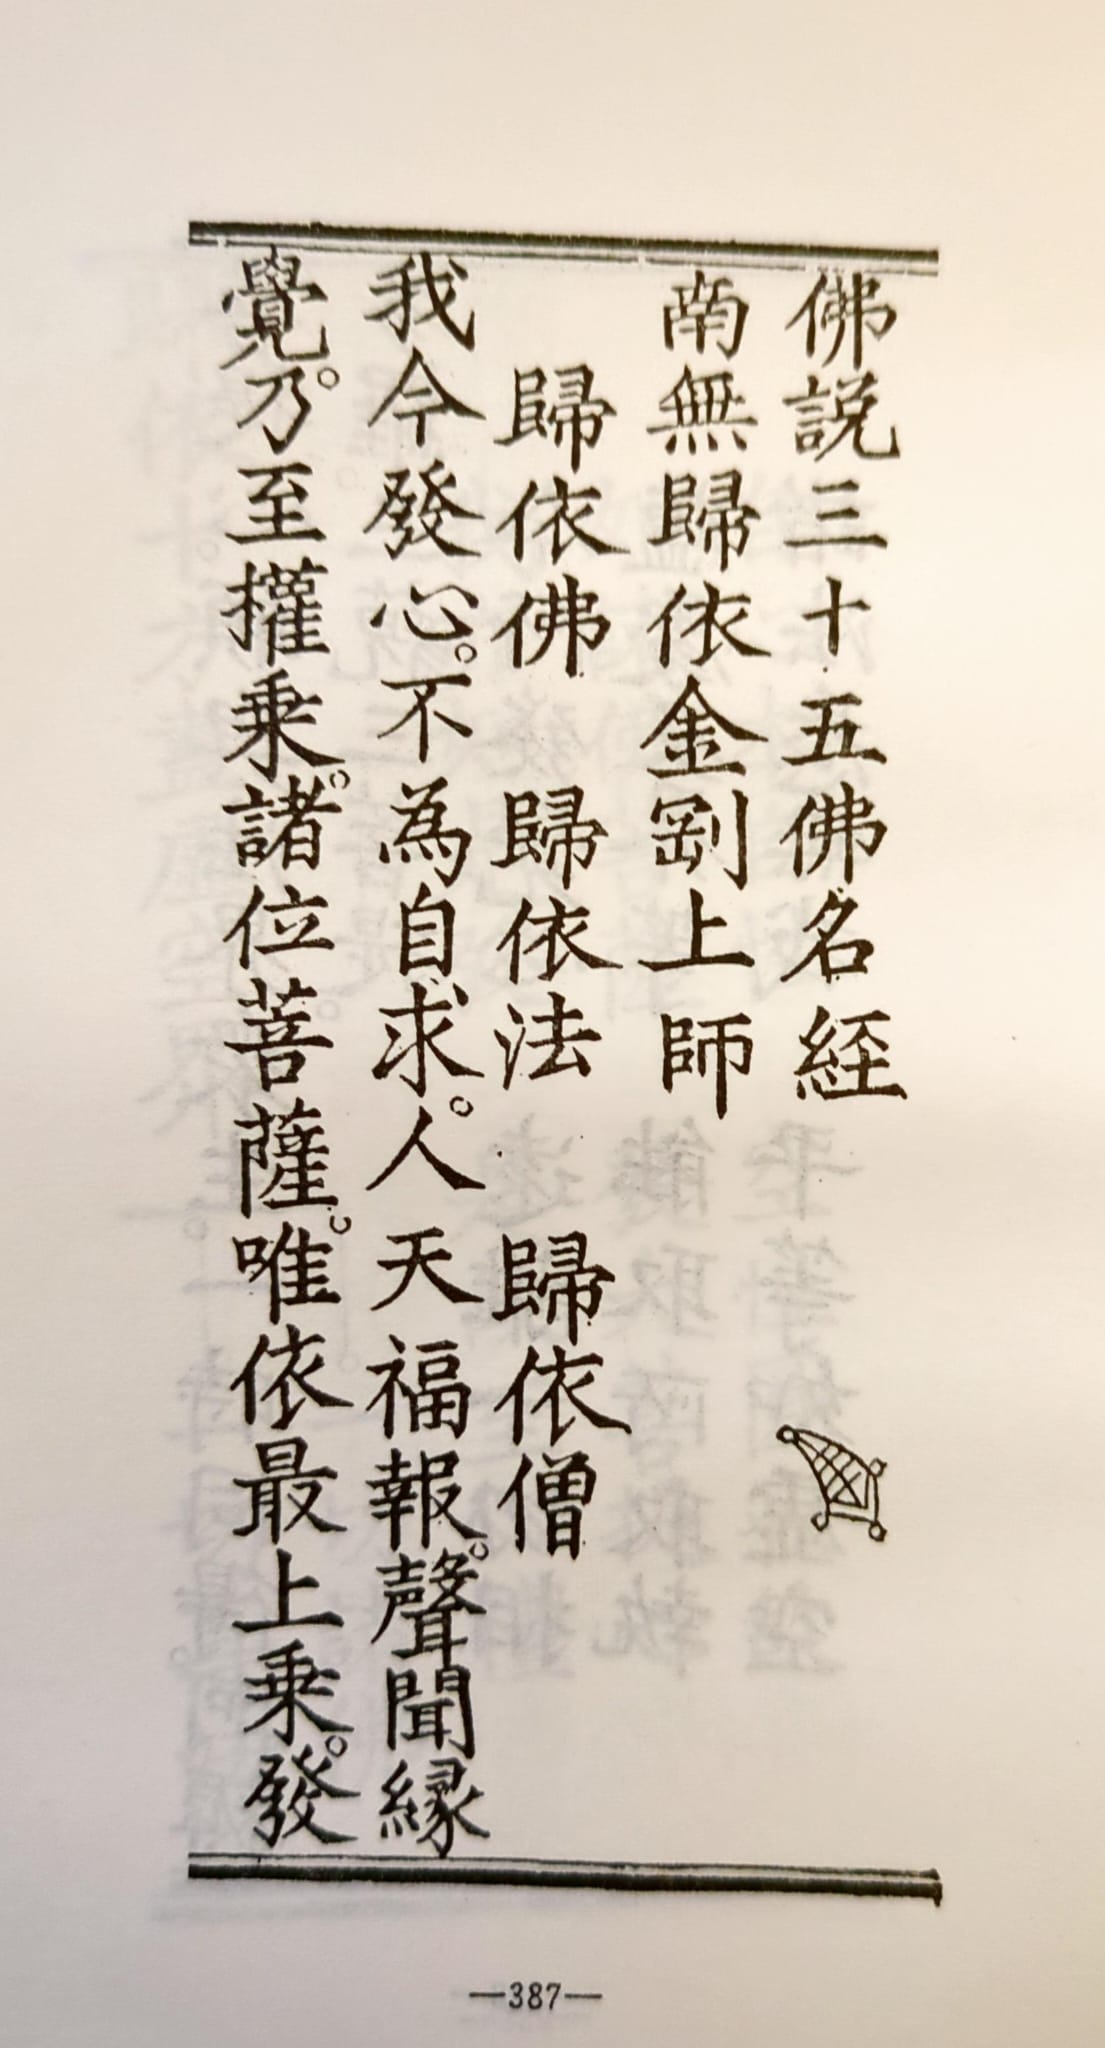 佛説三十五佛名経
南無歸依金剛上師
歸依佛 歸依法 歸依僧
我今發心。不為自求。人天福報。聲聞縁
覺。乃至權乗。諸位菩薩。唯依最上乗。發
—387—